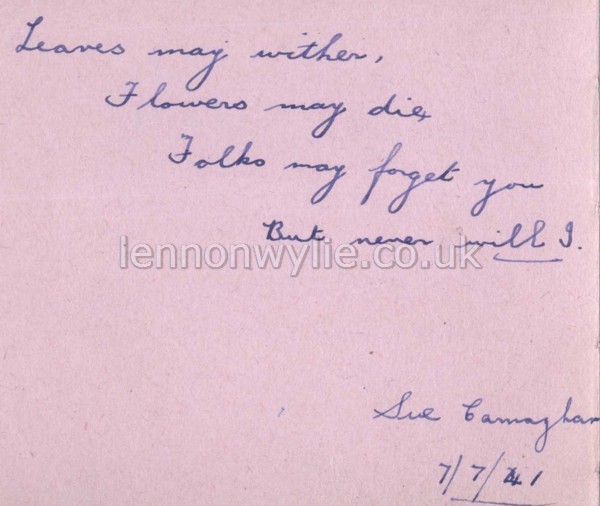 Leaves may wither,
Flowers may die,
Folks may forget you
But never will I.
lennonwylie.co.uk
Sue
7/7/41